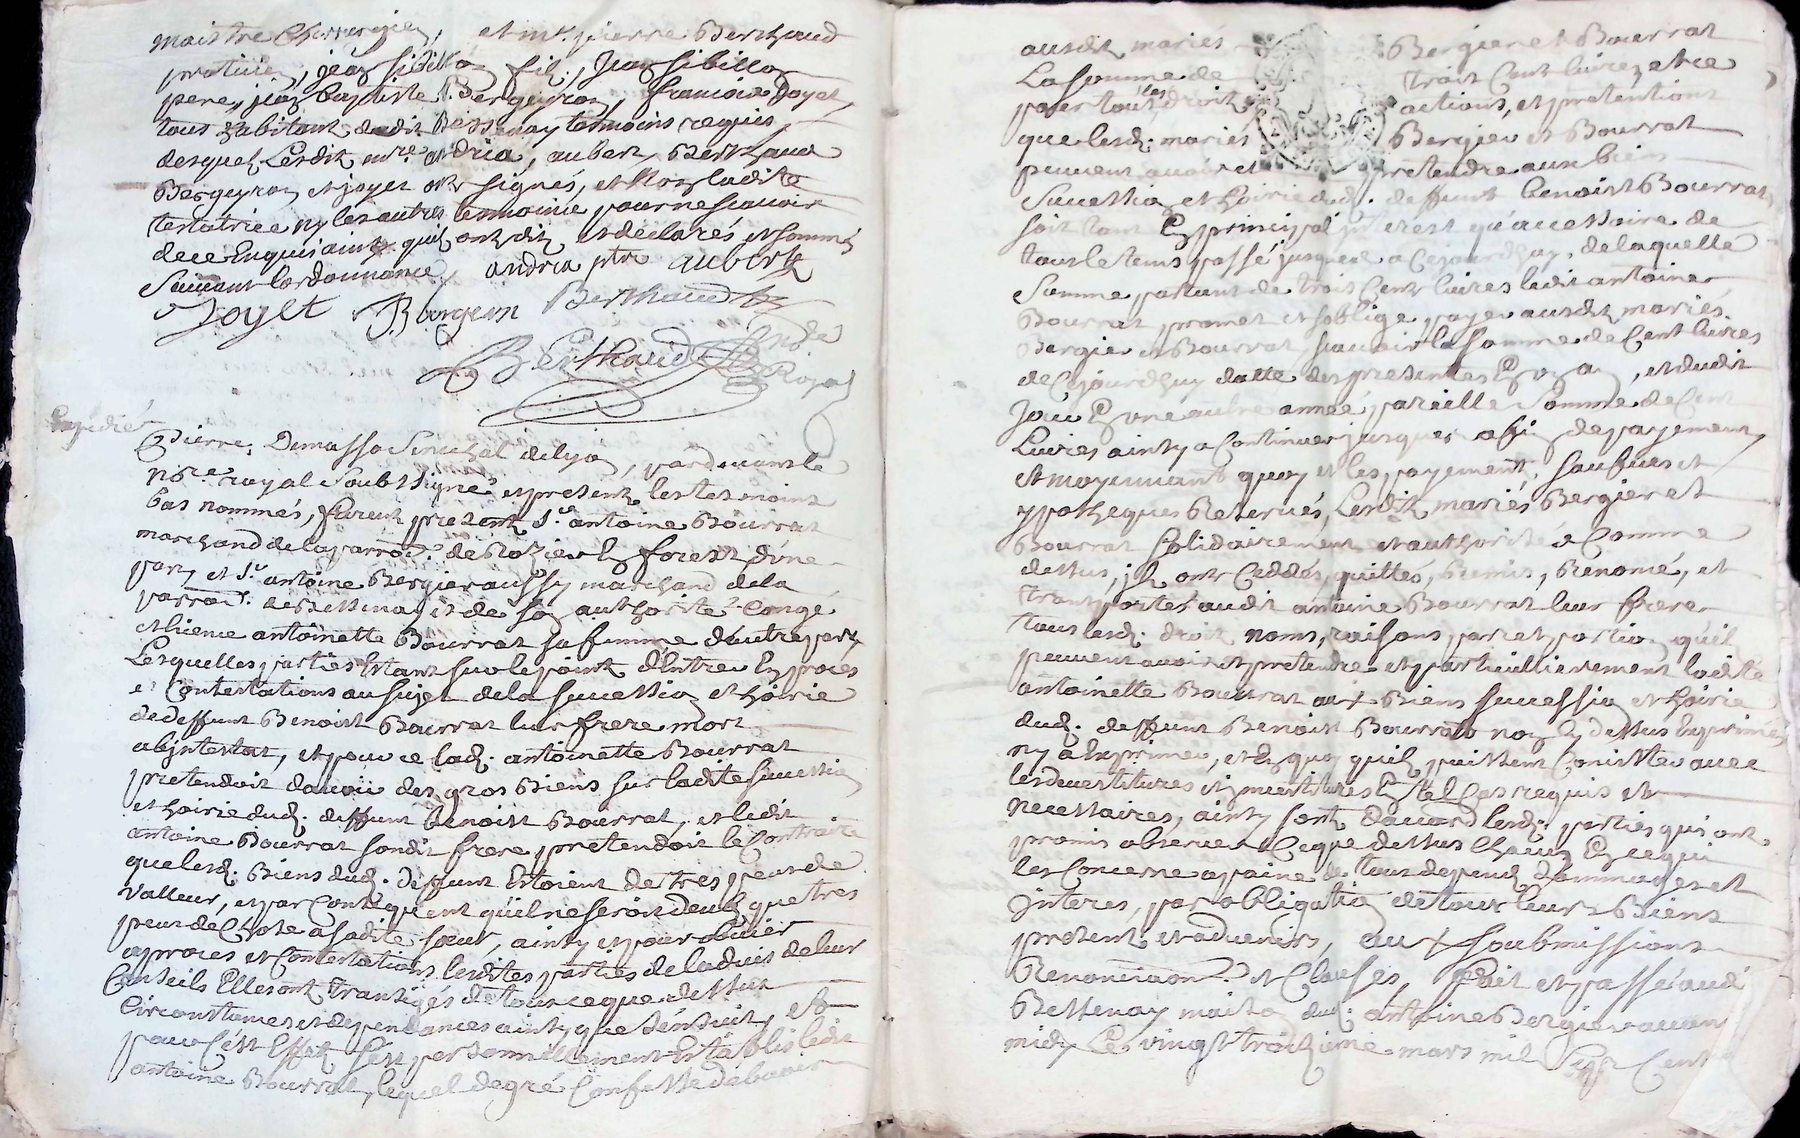 maistre Chirurgien, et mre. pierre Berthaud
praticien, jean sibillon fils, jean sibillon
pere, jean baptiste Bergeyron, francois Joyet,
tous habitant dudit Bessenay temoins requis
desquels Lesdits mre. andria, aubert, Berthaud
Bergeyron et joyet ont signés, et Non ladite
testatrice ny les autres temoins pour ne scavoir
de ce Enquis ainsy quils ont dit et declarés et sommés
Suivant lordonnance, andria ptre aubert
Joyet Bergeron Berthaud
Berthaud
Nore
Royal
Expédiée
Pierre Demasso Senechal de lyon, pardevant le
nore. royal Soubs signé et present les tesmoins
bas nommés, furent present Sr. antoine Bourrat
marchand de la parroisse de Rozier En forest d'une
part, et Sr. antoine Bergier aussy marchand de la
parrois. de Bessenay et de son authorité Congé
et licence antoinette Bourrat sa femme d'autre part,
Lesquelles parties Estant sur le point d'Entrer En proces
e Contestations au sujet de la succession et hoirie
de deffunt Benoist Bourrat leur frere mort
abjntestat, et pour ce lad. antoinette Bourrat
pretendoit davoir des gros Biens sur ladite succession
et hoirie dud. deffunt benoist Bourrat, et ledit
antoine Bourrat sondit frere pretendoit le Contraire
que lesd. Biens dud. deffunt Estoient de tres peu de
valleur, et par Consequent quil ne seroit deub que tres
peu de Chose a sadite sœur, ainsy et pour obvier
a proces et Contestations lesdites parties de ladvis de leur
Conseils Elles ont transigés de tout ce que dessus
Circonstances et dependances ainsy que s'ensuit, et
pour Cest Effet s'est personnellement Establis ledit
antoine Bourrat, lequel de gré Confesse debvoir
ausdits mariés Bergier et Bourrat
La somme de trois Cent livres et ce
pour tous les droits actions, et pretentions
que lesd. mariés Bergier et Bourrat
peuvent avoir et pretendre aux biens
Succession et hoirie dud. deffunt benoist Bourrat,
soit tant En principal jnterest qu'accessoire de
tout le tems passé jusques a Cejourdhuy, de laquelle
Somme partant de trois Cent livres ledit antoine
Bourrat promet et soblige payer ausdits mariés
Bergier et Bourrat scavoir la somme de Cent livres
de Cejourdhuy datte des presentes En un an, et dudit
Jour En une autre année pareille Somme de Cent
Livres ainsy a Continuer jusques a fin de payement,
et moyennant quoy et les payements, sauf iceux et
ypotheques Reservés, Lesdits mariés Bergier et
Bourrat solidairement et authorité e Comme
dessus, jls ont Ceddés, quittés, Remis, Renoncé, et
transportés audit antoine Bourrat leur frere
tous lesd. droits noms, raisons part et portion qu'il
peuvent avoir et pretendre et particullierement ladite
antoinette Bourrat aux Biens succession et hoirie
dud. deffunt Benoist Bourrat non Cy dessus Exprimés
ny a Exprimer, et En quoy quils puissent Consister avec
les devestitures et jnvestitures En tel Cas requis et
necessaires, ainsy sont d'accord lesd. parties qui ont
promis observer Ce que dessus Chacun En ce qui
les Concerne a paine de tous despens Dommages et
jnteres, par obligation de tous leurs Biens
present et advenirs, aux soubmissions
Renonciaons. et Clauses, Fait et passé aud
Bessenay maison dud. antoine Bergier avant
midy Le vingt troizieme mars mil sept Cent